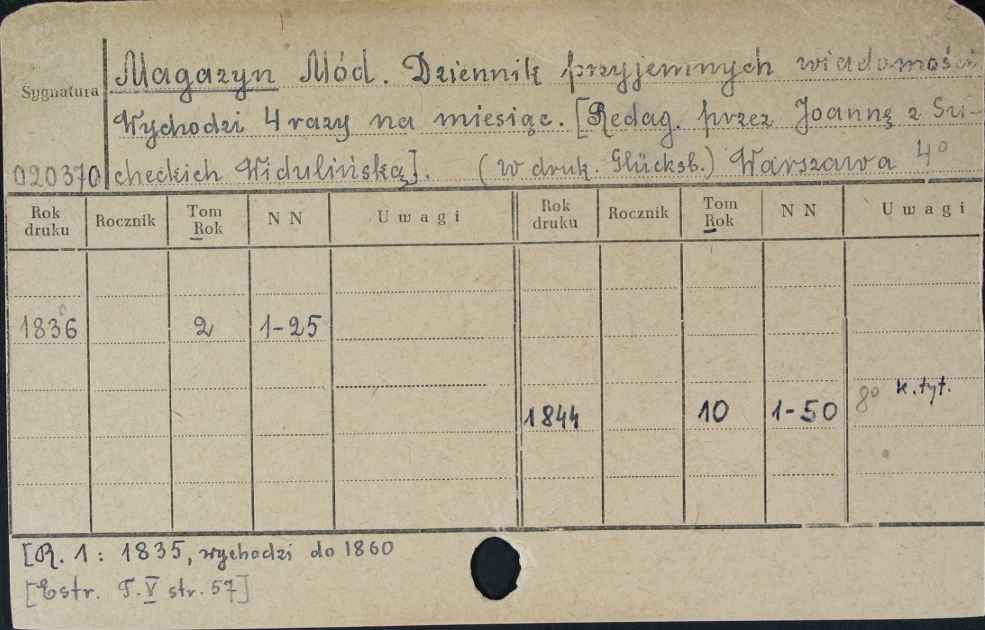 Magazyn Mód. Dziennik przyjemnych wiadomości
Sygnatura
Wychodzi 4 razy na miesiąc. [Redag. przez Joannę z Su-
020370 checkich Widulińską]. (W druk. Glücksb.) Warszawa 4º
Rok druku Rocznik Tom Rok NN Uwagi Rok druku Rocznik Tom Rok NN Uwagi
1836 2 1-25
1844 10 1-50 8º k.tyt.
[R. 1: 1835, wychodzi do 1860
[Estr. T. V str. 57]